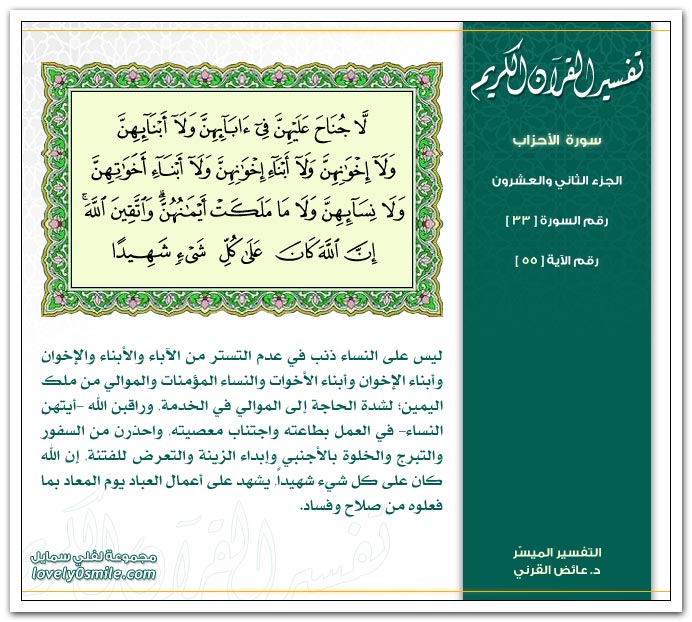 تفسير القرآن الكريم
سورة الأحزاب
الجزء الثاني والعشرون
رقم السورة [ ٣٣ ]
رقم الآية [ ٥٥ ]
لَّا جُنَاحَ عَلَيْهِنَّ فِىٓ ءَابَآئِهِنَّ وَلَآ أَبْنَآئِهِنَّ
وَلَآ إِخْوَٰنِهِنَّ وَلَآ أَبْنَآءِ إِخْوَٰنِهِنَّ وَلَآ أَبْنَآءِ أَخَوَٰتِهِنَّ
وَلَا نِسَآئِهِنَّ وَلَا مَا مَلَكَتْ أَيْمَٰنُهُنَّ ۗ وَٱتَّقِينَ ٱللَّهَ ۚ
إِنَّ ٱللَّهَ كَانَ عَلَىٰ كُلِّ شَىْءٍ شَهِيدًا
ليس على النساء ذنب في عدم التستر من الآباء والأبناء والإخوان
وأبناء الإخوان وأبناء الأخوات والنساء المؤمنات والموالي من ملك
اليمين؛ لشدة الحاجة إلى الموالي في الخدمة. وراقبن الله -أيتهن
النساء- في العمل بطاعته واجتناب معصيته. واحذرن من السفور
والتبرج والخلوة بالأجنبي وإبداء الزينة والتعرض للفتنة. إن الله
كان على كل شيء شهيداً. يشهد على أعمال العباد يوم المعاد بما
فعلوه من صلاح وفساد.
التفسير الميسّر
د. عائض القرني
مجموعة لفلي سمايل
lovely0smile.com
تفسير القرآن الكريم